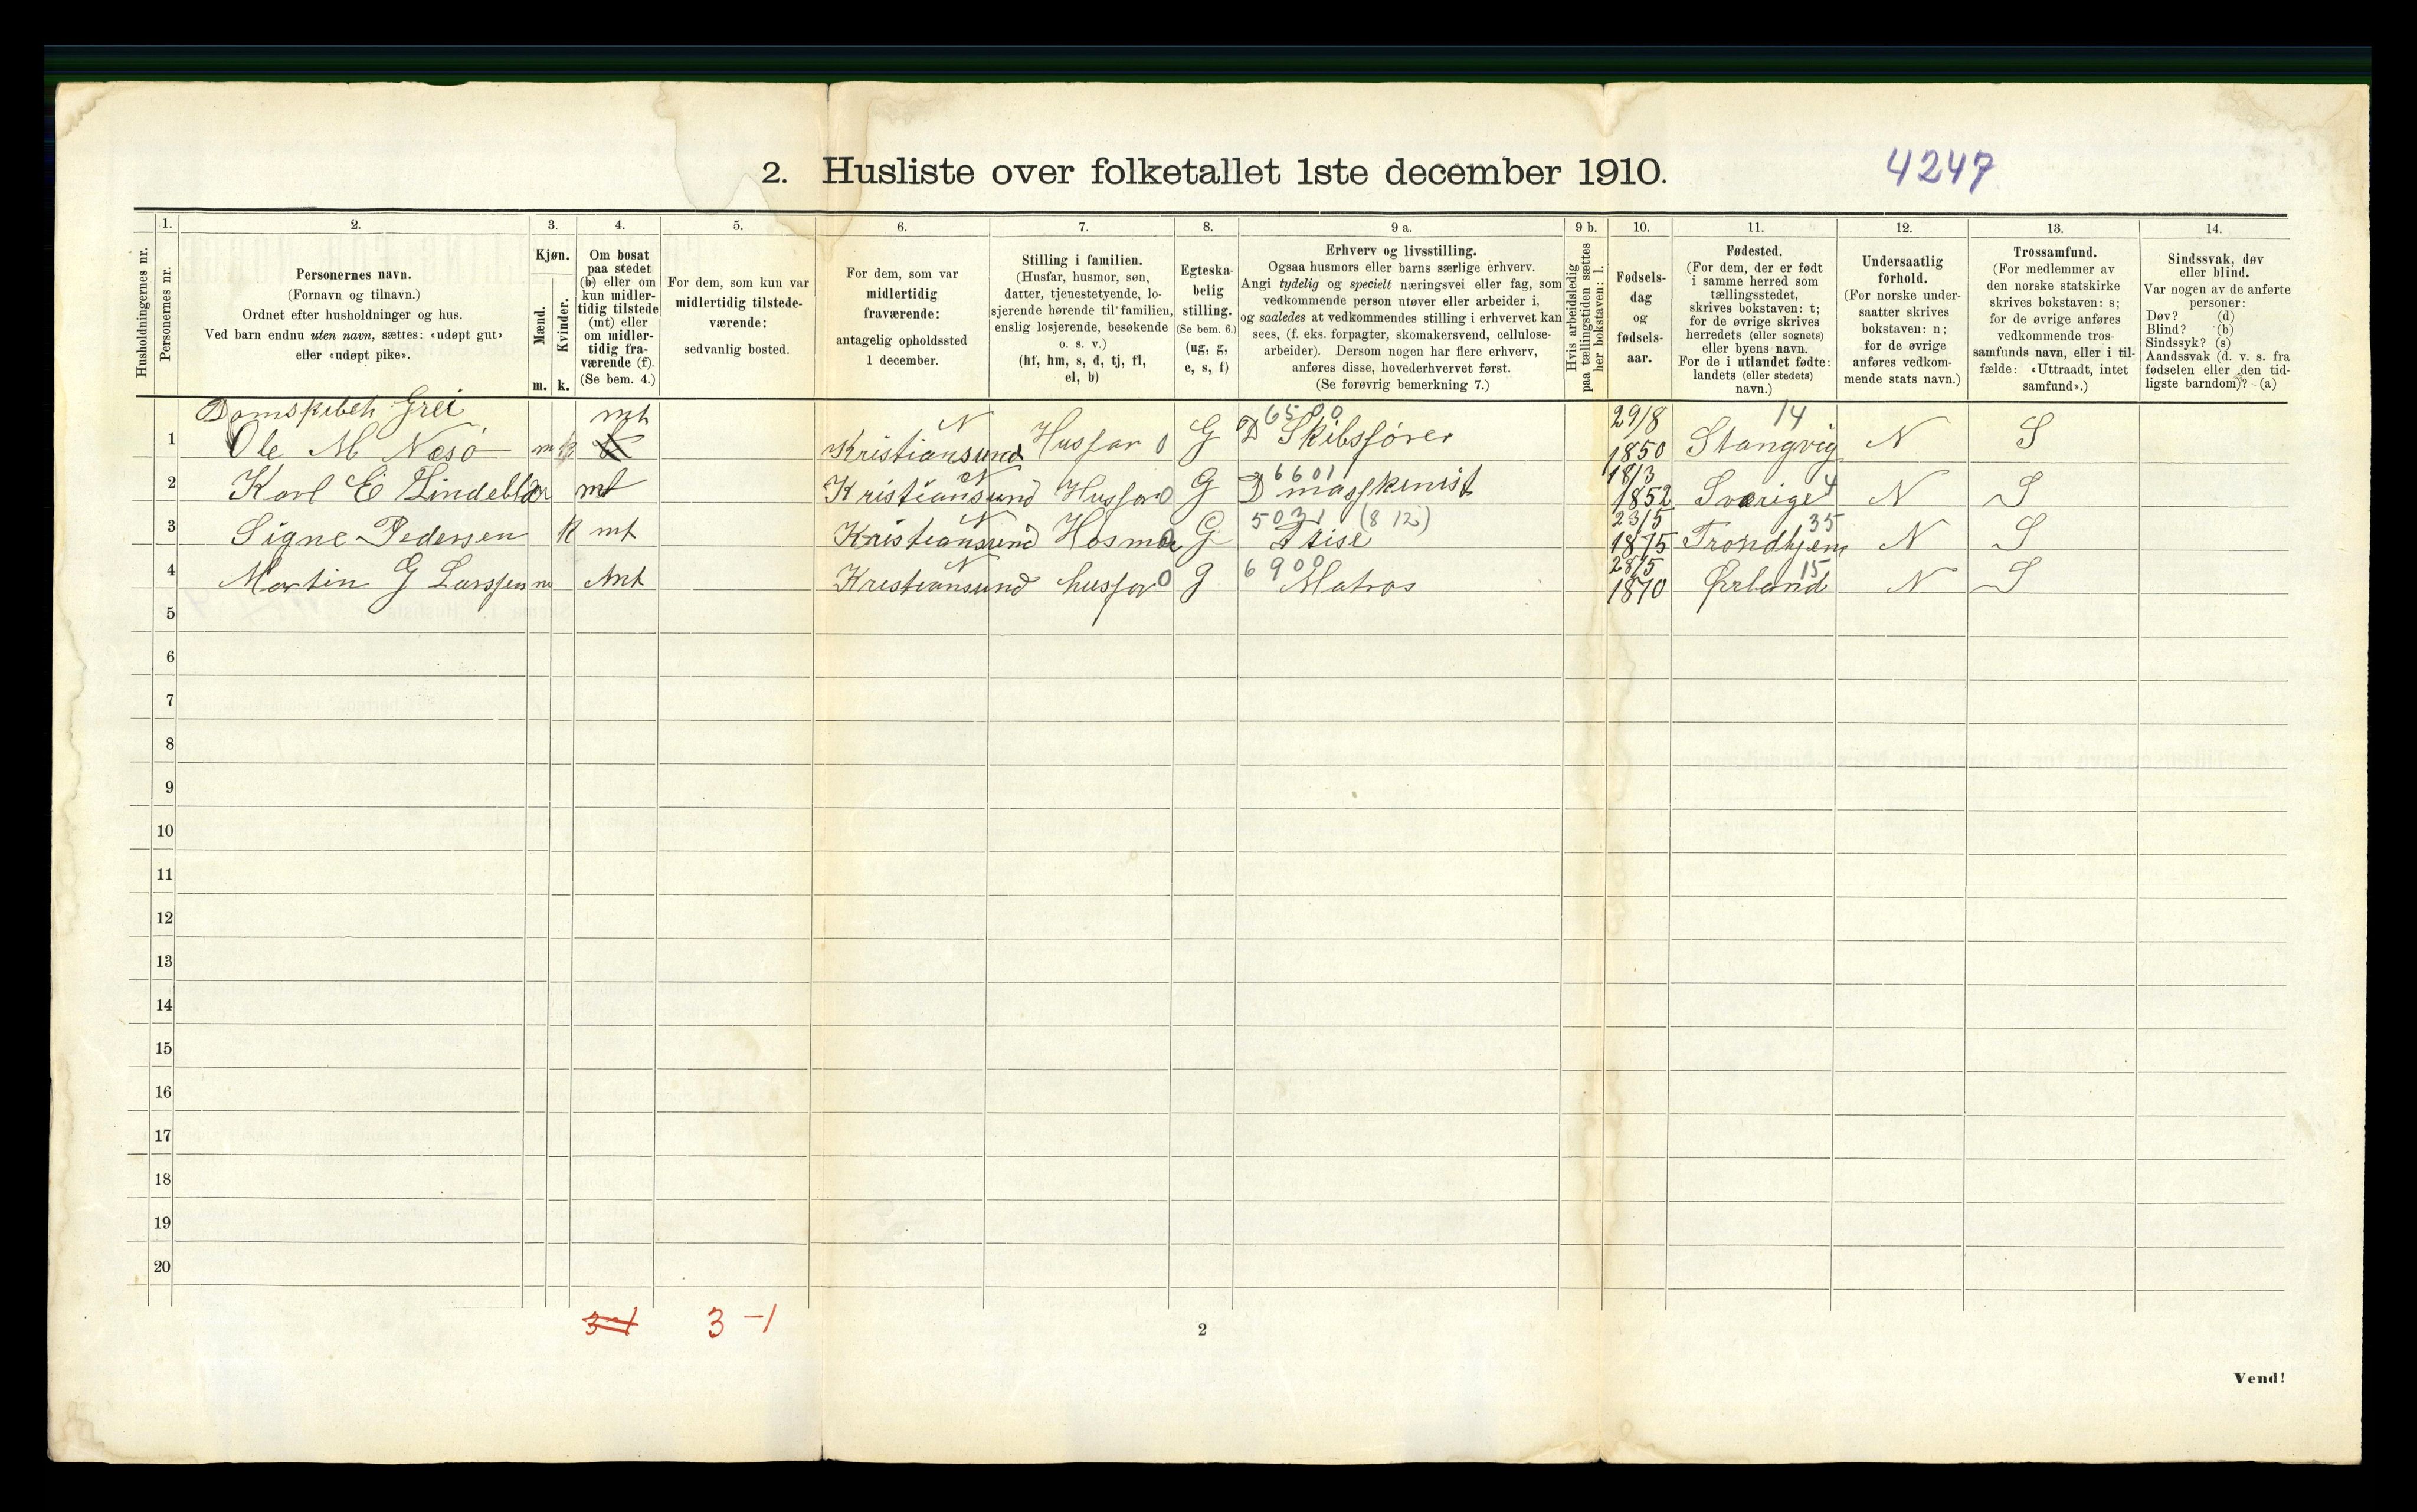 2. Husliste over folketallet 1ste december 1910.
4247
Husholdningernes nr.
1.
Personernes nr.
2.
Personernes navn.
(Fornavn og tilnavn.)
Ordnet efter husholdninger og hus.
Ved barn endnu uten navn, sættes: «udøpt gut»
eller «udøpt pike».
3.
Kjøn.
Mænd.
Kvinder.
m. k.
4.
Om bosat
paa stedet
(b) eller om
kun midler-
tidig tilstede
(mt) eller
om midler-
tidig fra-
værende (f).
(Se bem. 4.)
5.
For dem, som kun var
midlertidig tilstede-
værende:
sedvanlig bosted.
6.
For dem, som var
midlertidig
fraværende:
antagelig opholdssted
1 december.
7.
Stilling i familien.
(Husfar, husmor, søn,
datter, tjenestetyende, lo-
sjerende hørende til familien,
enslig losjerende, besøkende
o. s. v.)
(hf, hm, s, d, tj, fl,
el, b)
8.
Egteska-
belig
stilling.
(Se bem. 6.)
(ug, g,
e, s, f)
9 a.
Erhverv og livsstilling.
Ogsaa husmors eller barns særlige erhverv.
Angi tydelig og specielt næringsvei eller fag, som
vedkommende person utøver eller arbeider i,
og saaledes at vedkommendes stilling i erhvervet kan
sees, (f. eks. forpagter, skomakersvend, cellulose-
arbeider). Dersom nogen har flere erhverv,
anføres disse, hovederhvervet først.
(Se forøvrig bemerkning 7.)
9 b.
Hvis arbeidsledig
paa tællingstiden sættes
her bokstaven: l.
10.
Fødsels-
dag
og
fødsels-
aar.
11.
Fødested.
(For dem, der er født
i samme herred som
tællingsstedet,
skrives bokstaven: t;
for de øvrige skrives
herredets (eller sognets)
eller byens navn.
For de i utlandet fødte:
landets (eller stedets)
navn.)
12.
Undersaatlig
forhold.
(For norske under-
saatter skrives
bokstaven: n;
for de øvrige
anføres vedkom-
mende stats navn.)
13.
Trossamfund.
(For medlemmer av
den norske statskirke
skrives bokstaven: s;
for de øvrige anføres
vedkommende tros-
samfunds navn, eller i til-
fælde: «Uttraadt, intet
samfund».)
14.
Sindssvak, døv
eller blind.
Var nogen av de anførte
personer:
Døv? (d)
Blind? (b)
Sindssyk? (s)
Aandssvak (d. v. s. fra
fødselen eller den tid-
ligste barndom)? (a)
Damskibet Grei
1 Ole M Næsø m mt Kristiansund N Husfar 0 G 6500 D Skibsfører 29/8 1850 Stangvig 14 N S
2 Karl E Lindeblad m mt Kristiansund N Husfar 0 G 6601 D masskinist 18/3 1852 Sverige 4 N S
3 Signe Pedersen k mt Kristiansund N Hosmor G 5031 (8 12) 23/5 1875 Trondhjem 35 N S
4 Martin G Larssen m mt Kristiansund N husfar 0 g 6900 Matros 28/5 1870 Ørland 15 N S
5
6
7
8
9
10
11
12
13
14
15
16
17
18
19
20
3-1
3 -1
2
Vend!